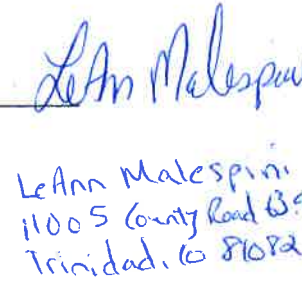 LeAnn Malespin
LeAnn Malespini
11005 County Road
Trinidad, Co 81082